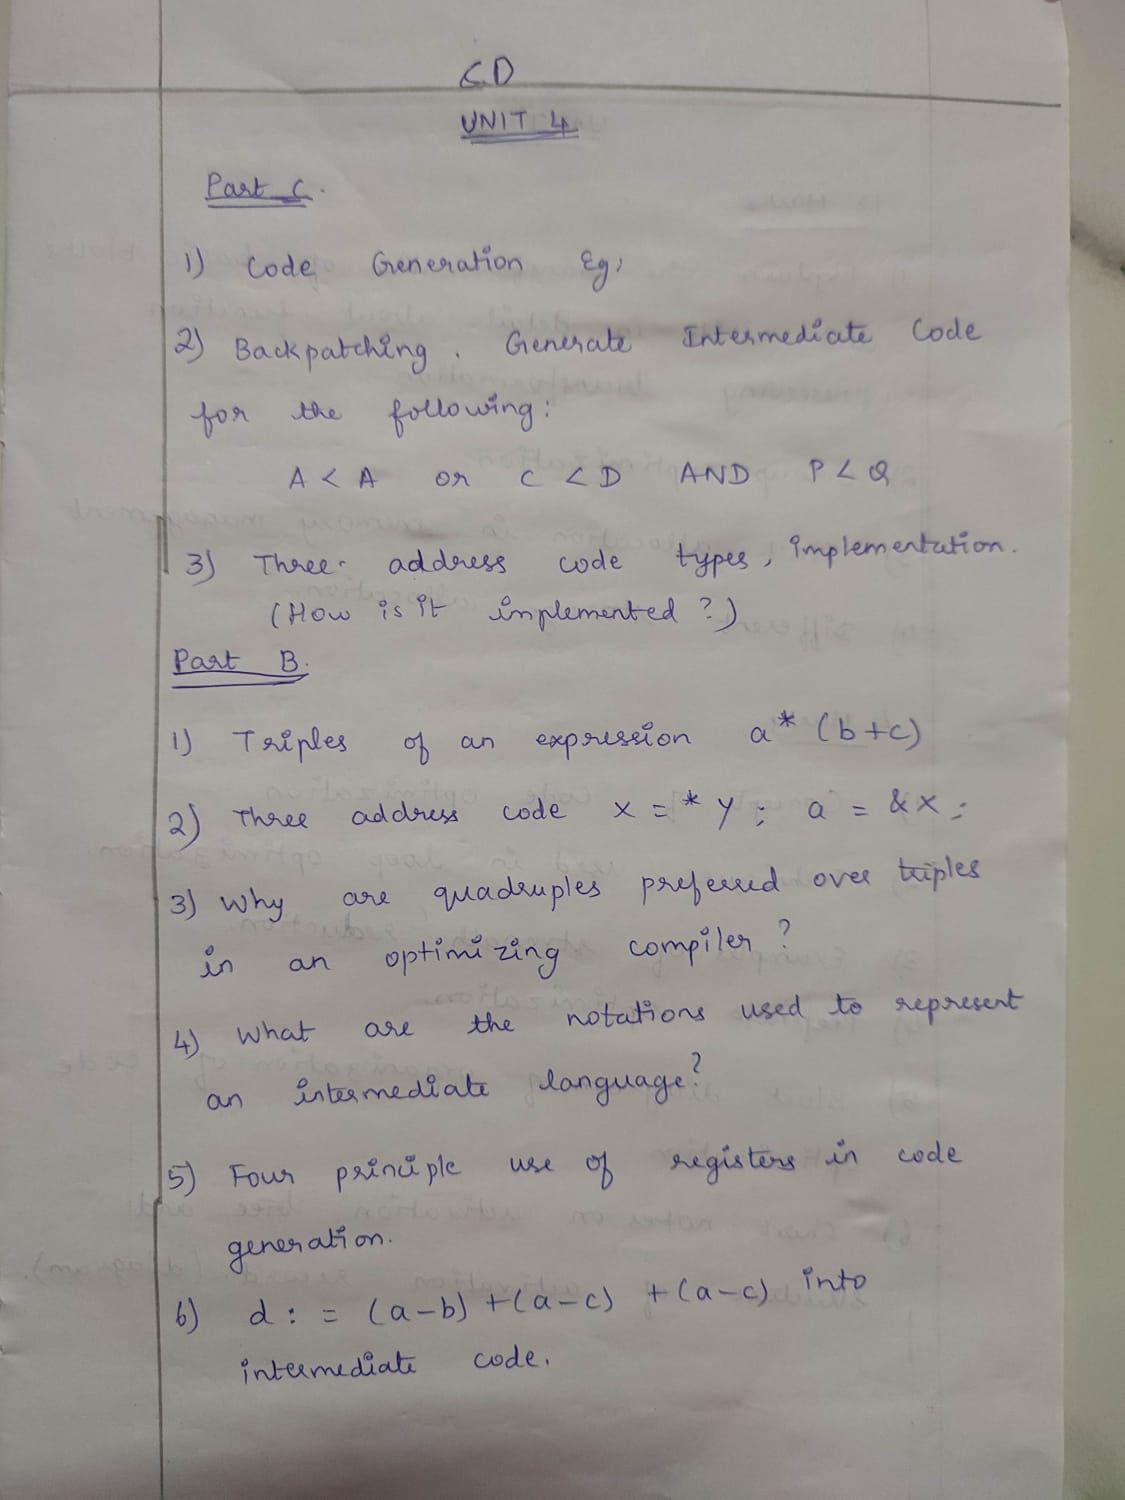 CD
UNIT 4
Part C.
1) Code Generation Eg;
2) Backpatching. Generate Intermediate Code
for the following:
A < A or C < D AND P < Q
3) Three address code types, implementation.
(How is it implemented?)
Part B.
1) Triples of an expression a* (b+c)
2) Three address code x = *y; a = &x;
3) Why are quadruples preferred over triples
in an optimizing compiler?
4) What are the notations used to represent
an intermediate language?
5) Four principle use of registers in code
generation.
6) d: = (a-b) +(a-c) +(a-c) into
intermediate code.